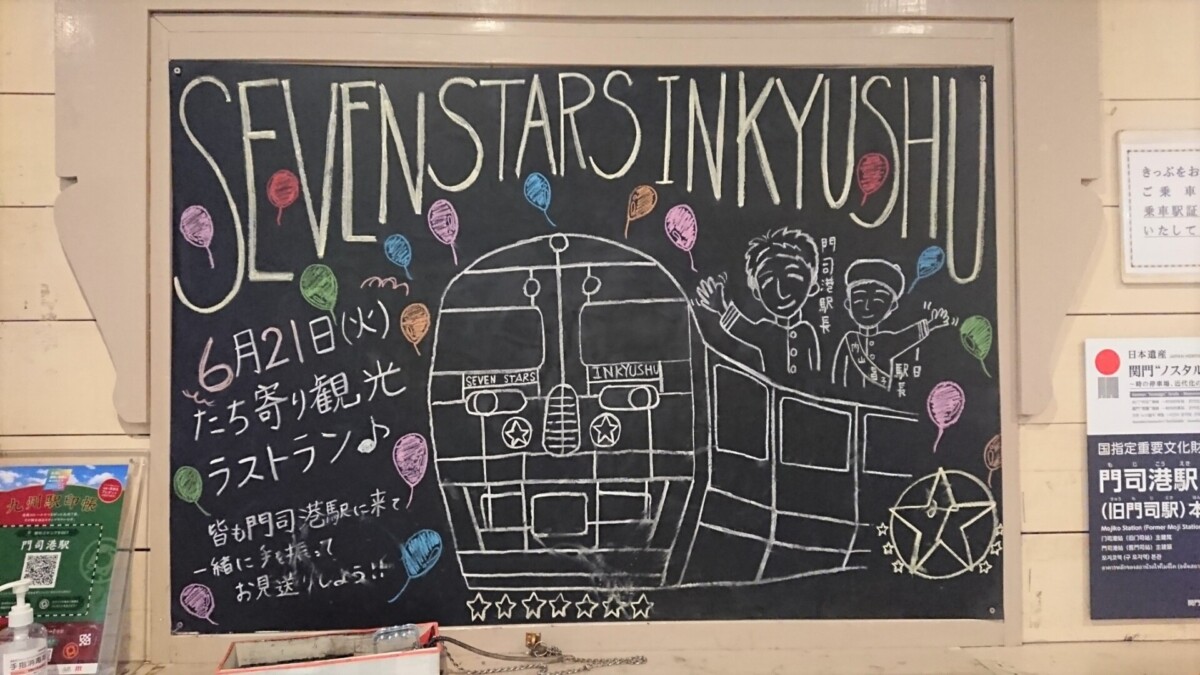 SEVEN STARS IN KYUSHU
6月21日(火)
たち寄り観光
ラストラン♪
皆も門司港駅に来て
一緒に手を振って
お見送りしよう!!
SEVEN STARS
INKYUSHU
門司港駅長
一日
駅長
きっぷをお
ご乗車
乗車駅証
いたして
日本遺産
関門"ノスタル
国指定重要文化財
もじこうえき
門司港駅
(旧門司駅)本
Mojiko Station (Former Moji Station
九州駅印祭
門司港駅
手指消毒